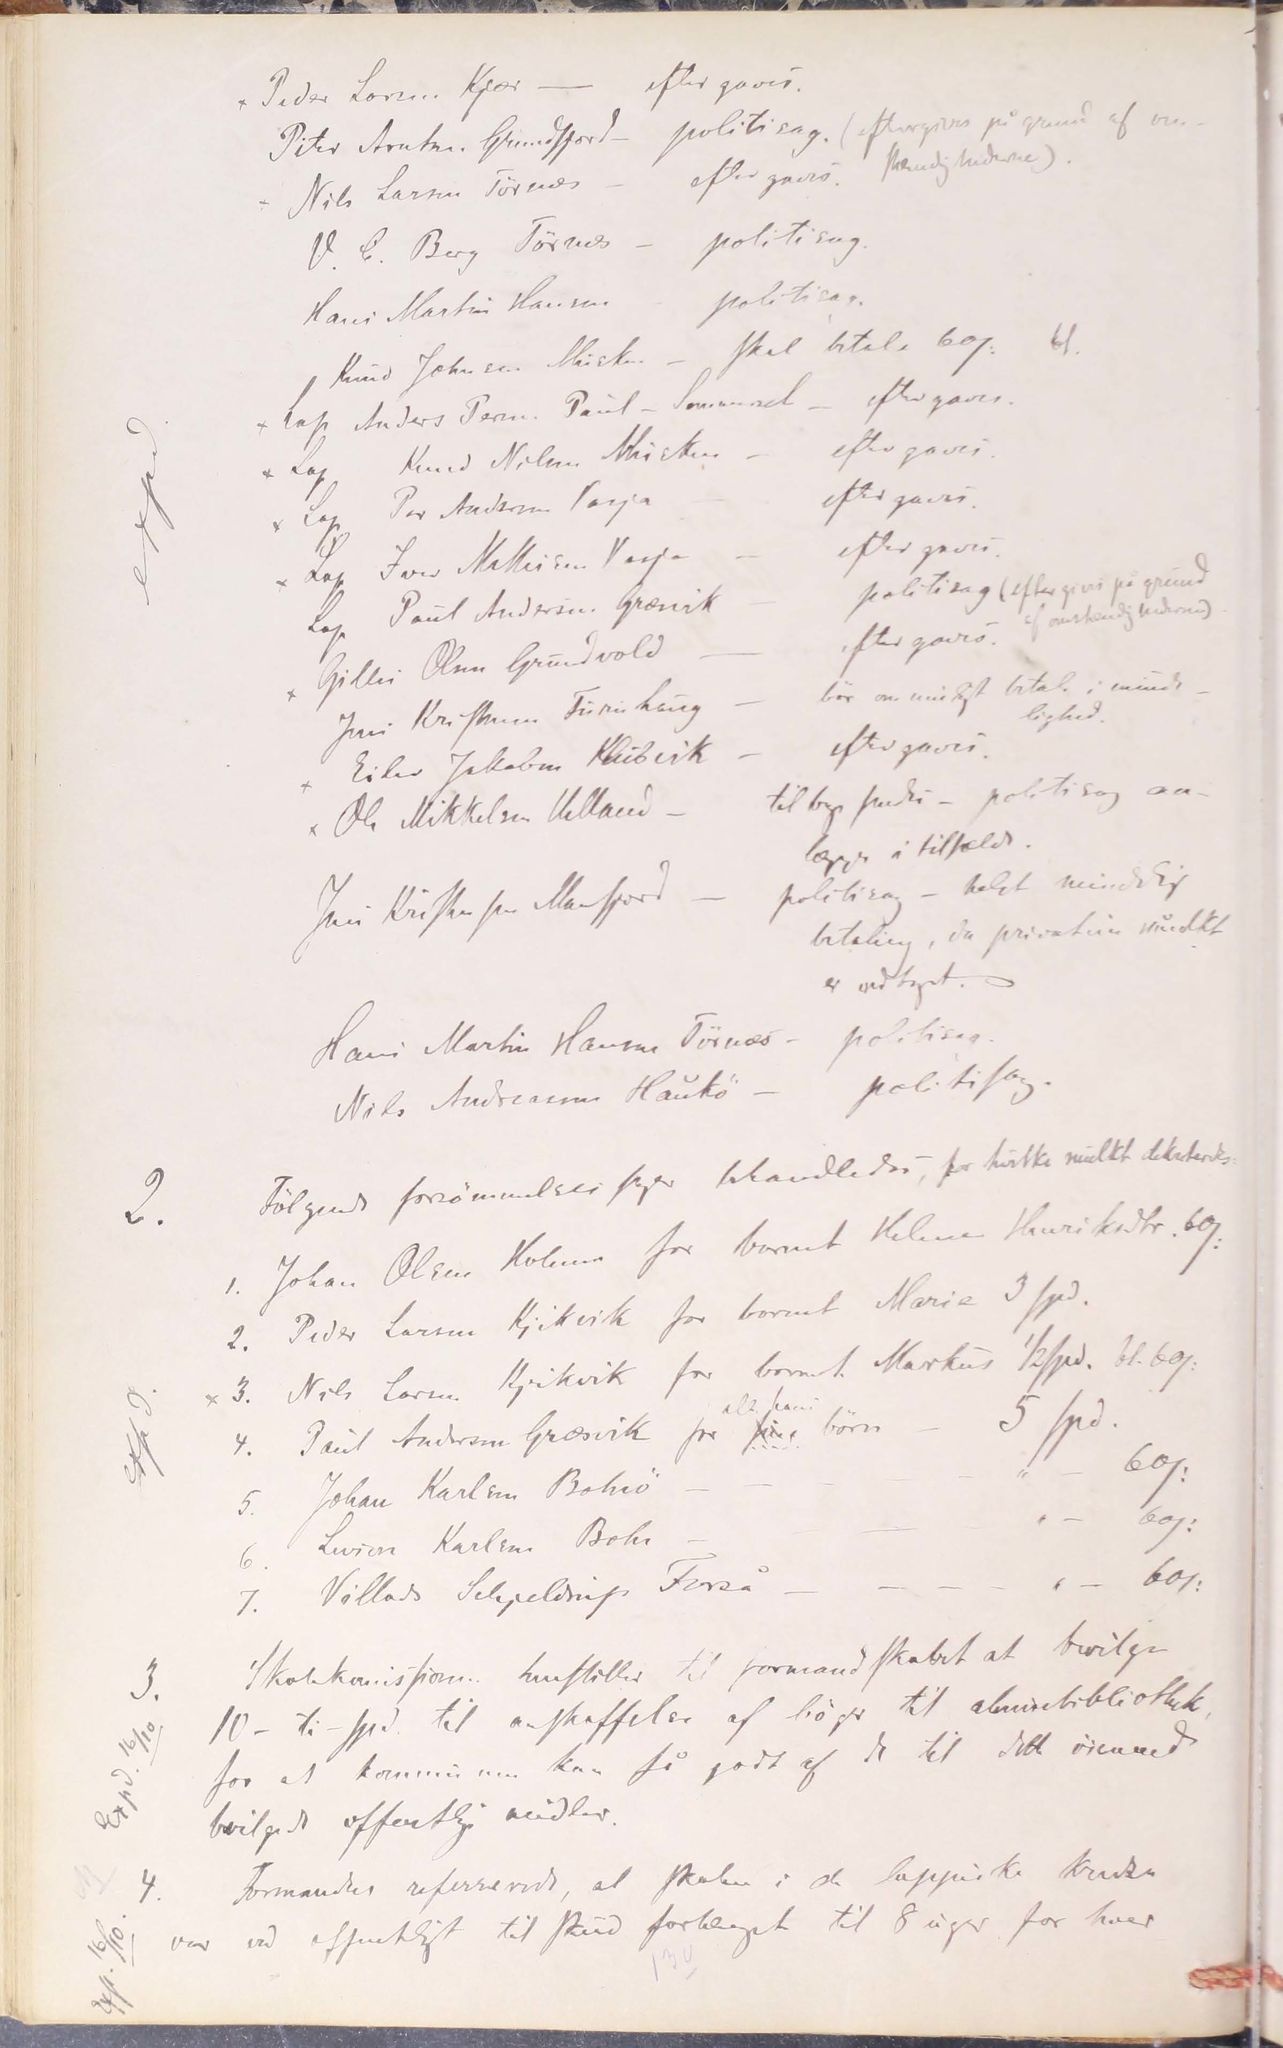 × Peder Larsen Kjær — eftergaves.
Peter Arntsen Grundfjord – politisag. (eftergives på grund af om-
stændighederne).
× Nils Larsen Törnæs – eftergaves.
V. C. Berg Törnæs – politisag.
Hans Martin Hansen – politisag.
Knud Johnsen Musken – skal betale 60 ſ: bt.
× Lap Anders Persen Paul-Sommersel – eftergaves.
× Lap Knud Nilsen Musken – eftergaves.
× Lap Per Andersen Vasja – eftergaves.
× Lap Iver Mathisen Vasja – eftergaves.
expd.
Lap Paul Andersen Græsvik – politisag (eftergives på grund
af omstændighederne)
× Gillis Olsen Grundvold — eftergaves.
Jens Kristensen – bör om muligt betale i minde-
lighed.
× Eiler Jakobsen Klubvik – eftergaves.
× Ole Mikkelsen Helland – tilbage – politisag an-
lægges i tilfælde.
Jens Kristensen Mansfjord – politisag – helst mindelig
betaling, da privatim mulkt
er vedtaget.
Hans Martin Hansen Törnæs – politisag.
Nils Andreassen Haukö – politisag.
2. Fölgende forsömmelsessager behandledes, for hvilke mulkt dikteredes:
1. Johan Olsen Holmen for barnet Helene Henriksdtr. 60 ſ:
2. Peder Larsen Kjikvik for barnet Marie 3 spd.
× 3. Nils Larsen Kjikvik for barnet Markus 1/2 spd. bt. 60 ſ:
expd.
4. Paul Andersen Græsvik for alle hans börn – 5 spd.
5. Johan Karlsen Bohnö – – – – " – 60 ſ:
6. Karlsen Bohn – – – " – 60 ſ:
7. Villads Schjeldrup Forså – – – – " – 60 ſ:
3. Skolekomissionen henstiller til formandskabet at bevilge
10 – ti – spd. til anskaffelse af böger til almuebibliothek,
Expd. 16/10
for at kommunen kan få godt af de til dette öiemed
bevilgede offentlige midler.
4. Formanden refererede, at skolen i de lappiske kredse
Exp. 16/10.
var ved offentligt tilskud forlænget til 8 uger for hver
130